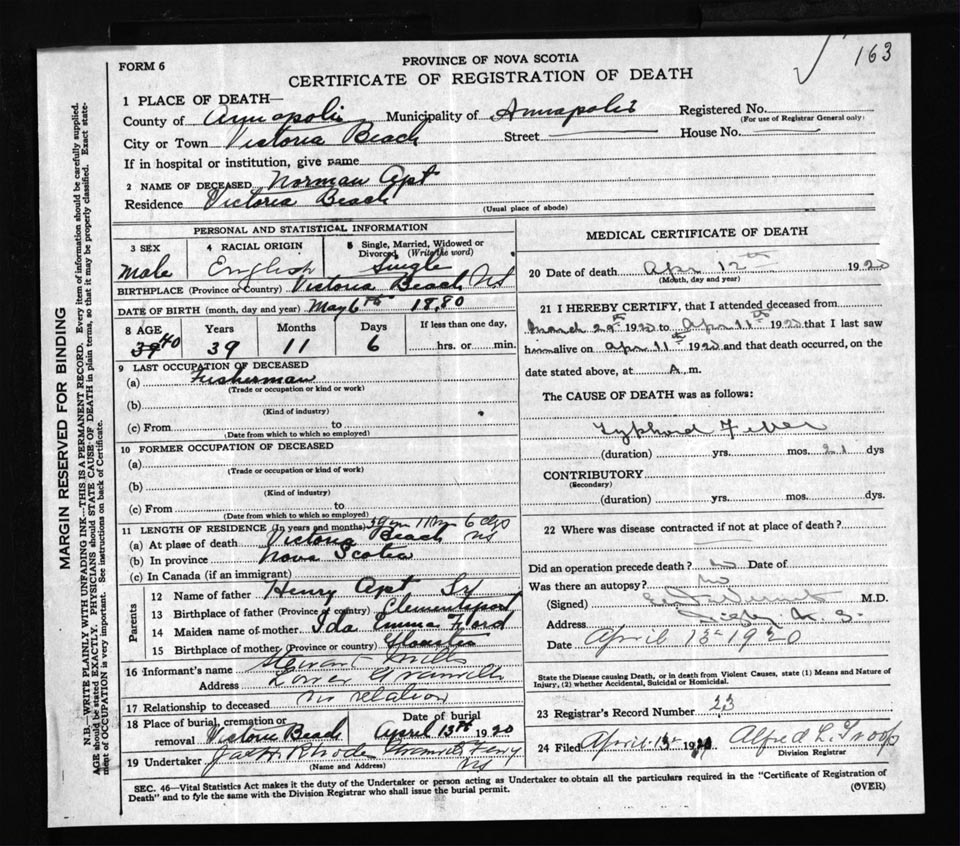 163
PROVINCE OF NOVA SCOTIA
FORM 6
CERTIFICATE OF REGISTRATION OF DEATH
MARGIN RESERVED FOR BINDING
N.B.—WRITE PLAINLY WITH UNFADING INK—THIS IS A PERMANENT RECORD. Every item of information should be carefully supplied.
AGE should be stated EXACTLY. PHYSICIANS should STATE CAUSE OF DEATH in plain terms, so that it may be properly classified. Exact state-
ment of OCCUPATION is very important. See instructions on back of Certificate.
1 PLACE OF DEATH—
County of Annapolis Municipality of Annapolis Registered No.
(For use of Registrar General only)
City or Town Victoria Beach Street House No.
If in hospital or institution, give name
2 NAME OF DECEASED Norman Apt
Residence Victoria Beach
(Usual place of abode)
PERSONAL AND STATISTICAL INFORMATION
3 SEX 4 RACIAL ORIGIN 5 Single, Married, Widowed or
Divorced (Write the word)
Male English Single
BIRTHPLACE (Province or Country) Victoria Beach NS
DATE OF BIRTH (month, day and year) May 6th 1880
8 AGE Years Months Days If less than one day,
39 40 39 11 6 hrs. or min.
9 LAST OCCUPATION OF DECEASED
(a) Fisherman
(Trade or occupation or kind or work)
(b)
(Kind of industry)
(c) From to
(Date from which to which so employed)
10 FORMER OCCUPATION OF DECEASED
(a)
(Trade or occupation or kind of work)
(b)
(Kind of industry)
(c) From to
(Date from which to which so employed)
11 LENGTH OF RESIDENCE (In years and months) 39 yrs 11 6 dys
(a) At place of death Victoria Beach NS
(b) In province Nova Scotia
(c) In Canada (if an immigrant)
Parents
12 Name of father Henry Apt Sr
13 Birthplace of father (Province or country) Clementsport
14 Maiden name of mother Ida Emma Ford
15 Birthplace of mother (Province or country)
16 Informant's name Stewart Mills
Address Lower Granville
17 Relationship to deceased no relation
18 Place of burial, cremation or Date of burial
removal Victoria Beach April 13th 1920
19 Undertaker Rhodes Granville Ferry
(Name and Address) NS
MEDICAL CERTIFICATE OF DEATH
20 Date of death Apr 12th 1920
(Month, day and year)
21 I HEREBY CERTIFY, that I attended deceased from
March 29th 1920 to Apr 11th 1920 that I last saw
him alive on Apr 11th 1920 and that death occurred, on the
date stated above, at A m.
The CAUSE OF DEATH was as follows:
Typhoid Fever
(duration) yrs. mos. 21 dys
CONTRIBUTORY
(Secondary)
(duration) yrs. mos. dys.
22 Where was disease contracted if not at place of death?
Did an operation precede death? no Date of
Was there an autopsy? no
(Signed) M.D.
Address Digby N. S.
Date April 13 1920
State the Disease causing Death, or in death from Violent Causes, state (1) Means and Nature of
Injury, (2) whether Accidental, Suicidal or Homicidal.
23 Registrar's Record Number 23
24 Filed April 13 1920 Alfred L. Troop
Division Registrar
SEC. 46—Vital Statistics Act makes it the duty of the Undertaker or person acting as Undertaker to obtain all the particulars required in the "Certificate of Registration of
Death" and to fyle the same with the Division Registrar who shall issue the burial permit.
(OVER)